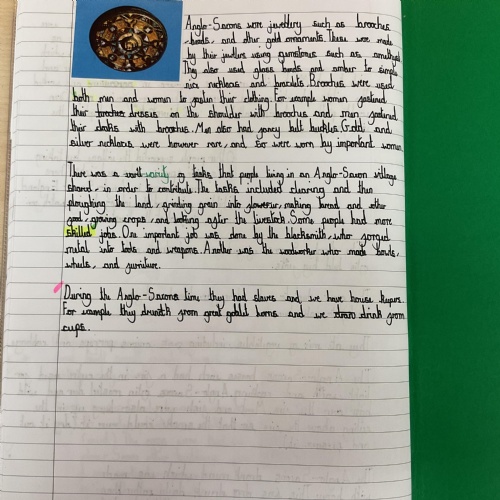 Anglo-Saxons wore jewellery such as brooches
beads, and other gold ornaments. These were made
by their jewllers using gemstones such as amethyst
They also used glass beads and amber to simple
necklaces and bracelets. Brooches were used
both men and women to fasten their clothing. For example women fastened
their brooches dresses on the shoulder with brooches and men fastened
their cloaks with brooches. Men also had fancy belt buckles. Gold and
silver necklaces were however rare and so were worn by important women.
There was a varity of tasks that people living in an Anglo-Saxon village
shared in order to contribute. The tasks included clearing and then
ploughing the land, grinding grain into flower, making bread and other
food, growing crops and looking after the livestock. Some people had more
skilled jobs. One important job was done by the blacksmith, who forged
metal into tools and weapons. Another was the woodworker who made bowls,
wheels, and furniture.
During the Anglo-Saxons time they had slaves and we have house
For example they drunk from great goblit horns and we drink from
cups.